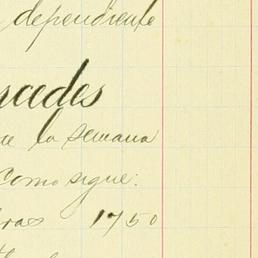 dependiente
rcedes
de la semana
como sigue:
ras 1750